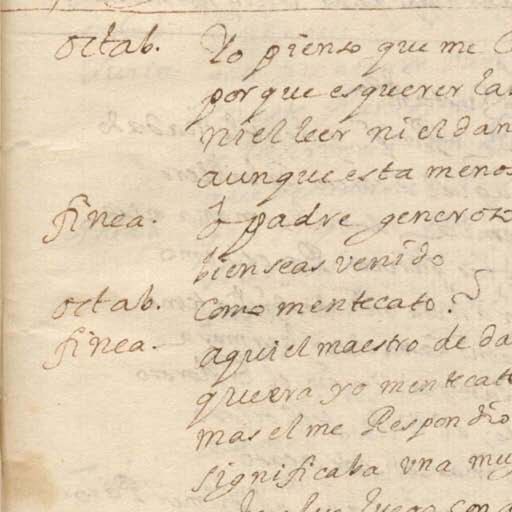 octab. Yo pienso que me
porque es querer la
ni el leer ni el dan
aunque esta menos
finea. ô padre generoso
bien seas venido
octab. como mentecato?
finea. aqui el maestro de da
que era yo mentecat
mas el me Respondio
significaba vna mu